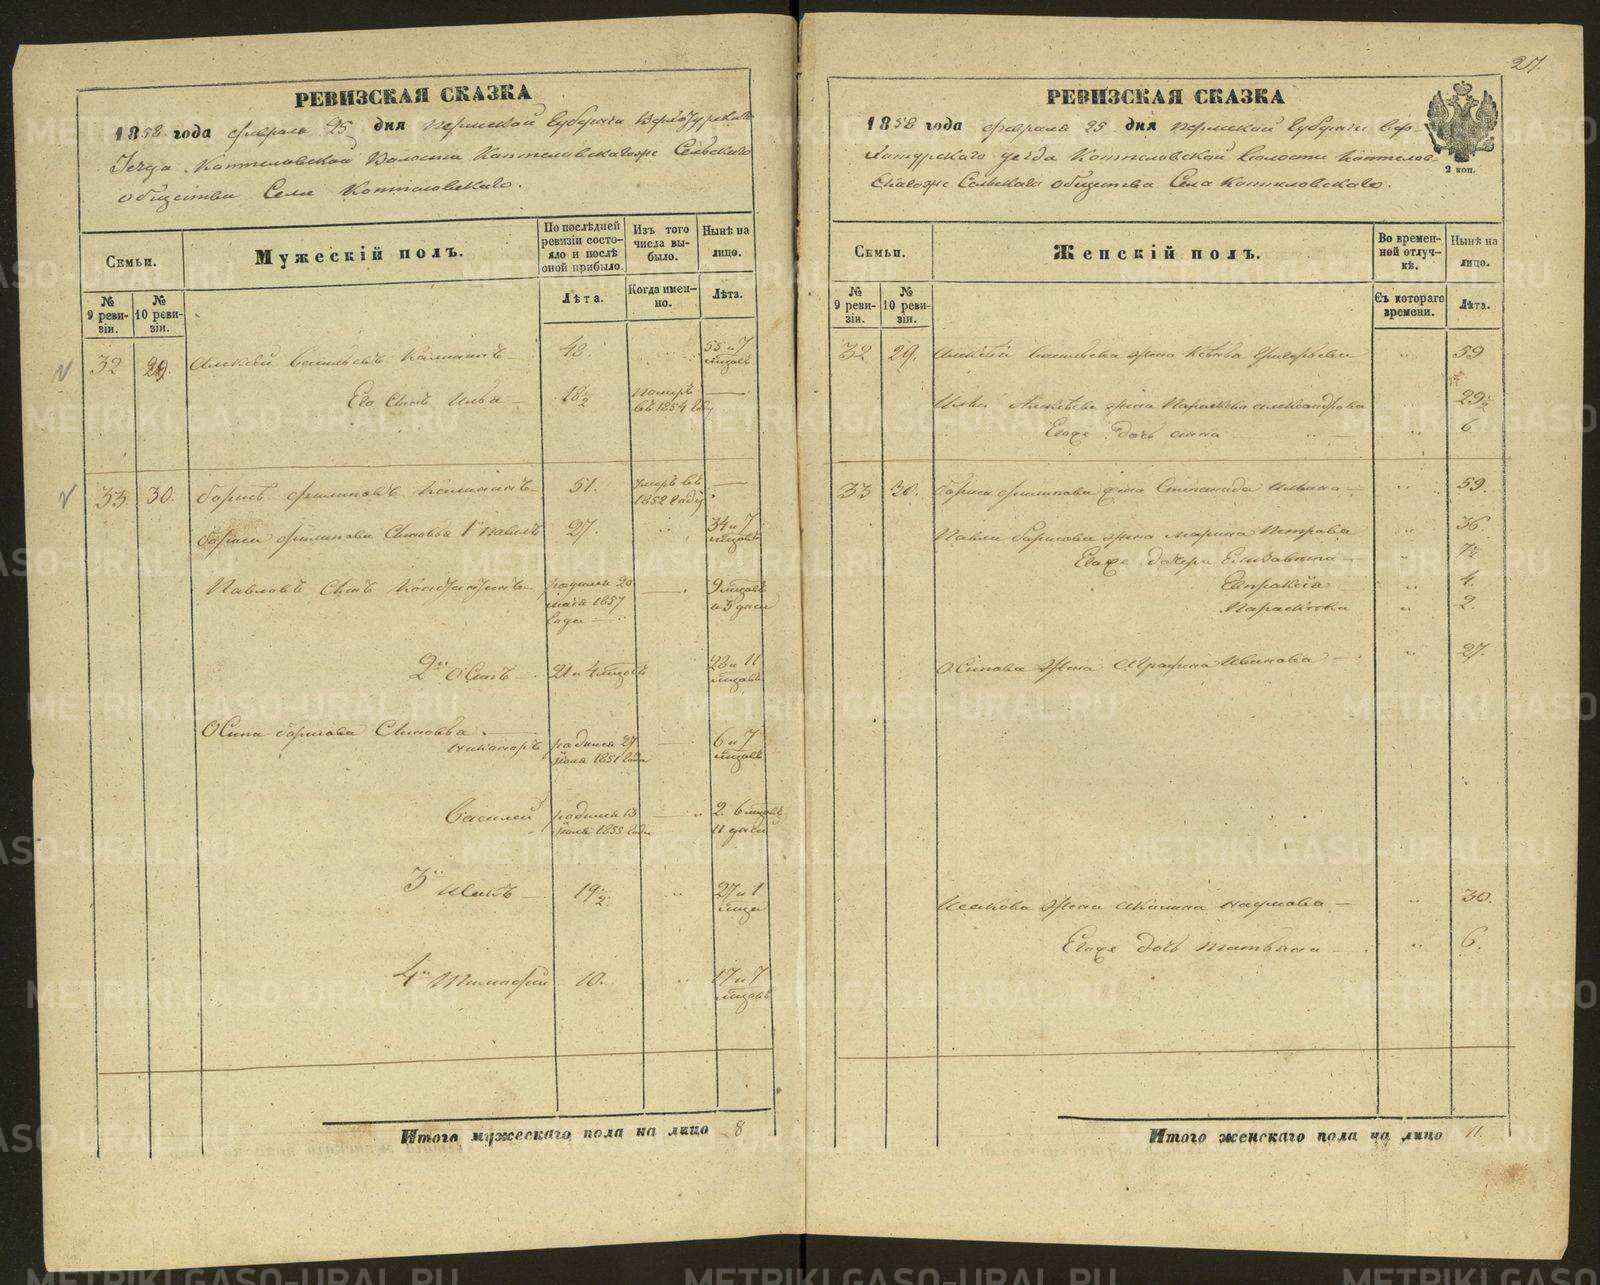 27.
РЕВИЗСКАЯ СКАЗКА
1858 года февраля 25 дня Пермской Губернии Верхотурскаго
Уезда Коптеловской Волости Коптеловскагоже Сельскаго
общества Села Коптеловскаго.
Семьи.
Мужескій полъ.
По послѣдней ревизіи состояло и послѣ оной прибыло.
Изъ того числа выбыло.
Нынѣ на лицо.
№ 9 ревизіи.
№ 10 ревизіи.
Лѣта.
Когда именно.
Лѣта.
32 29. Алексей Васильевъ 48 55 и 7 месцовъ
Его сынъ Илья — 18½ померъ въ 1854 году —
33 30. Борисъ Филиповъ 51. умеръ въ 1852 году —
Бориса Филипова Сыновья 1й Павелъ 27. " 34 и 7 месцовъ
Павловъ Сынъ Константинъ родился 20 мая 1857 года — 9 месцовъ и 5 дней
2й Осипъ — 21 и 4 месцовъ 28 и 11 месцовъ
Осипа Борисова Сыновья
Никаноръ родился 27 июля 1851 года — 6 и 7 месцовъ
Василей родился 13 июля 1855 года — 2. 6 месцовъ 11 дней
3й Исакъ — 19½ " 27 и 1 месцъ
4й Тимофей 10. " 17 и 7 месцовъ
Итого мужескаго пола на лицо 8
РЕВИЗСКАЯ СКАЗКА
2 коп.
1858 года февраля 25 дня Пермской Губернии Вер-
хотурскаго уезда Коптеловской волости Коптелов-
скагоже Сельскаго общества Села Коптеловскаго.
Семьи.
Женскій полъ.
Во временной отлучкѣ.
Нынѣ на лицо.
№ 9 ревизіи.
№ 10 ревизіи.
Съ котораго времени.
Лѣта.
32 29. Алексея Васильева жена Григорьева " 59
Ильи Алексеева жена Парасковья Александрова 29½
Егоже дочь Анна " 6
33 30. Бориса Филипова жена Степанида Ильина — " 59.
Павла Борисова жена Марина Петрова " 36.
Егоже дочери Елизавета — " 7½
Евпраксия — " 4.
Парасковья " 2.
Осипова жена Аграфена Иванова — " 27.
Исакова жена Акилина Наумова — " 30.
Егоже дочь Татьяна — " 6.
Итого женскаго пола на лицо 11.
METRIKI.GASO-URAL.RU